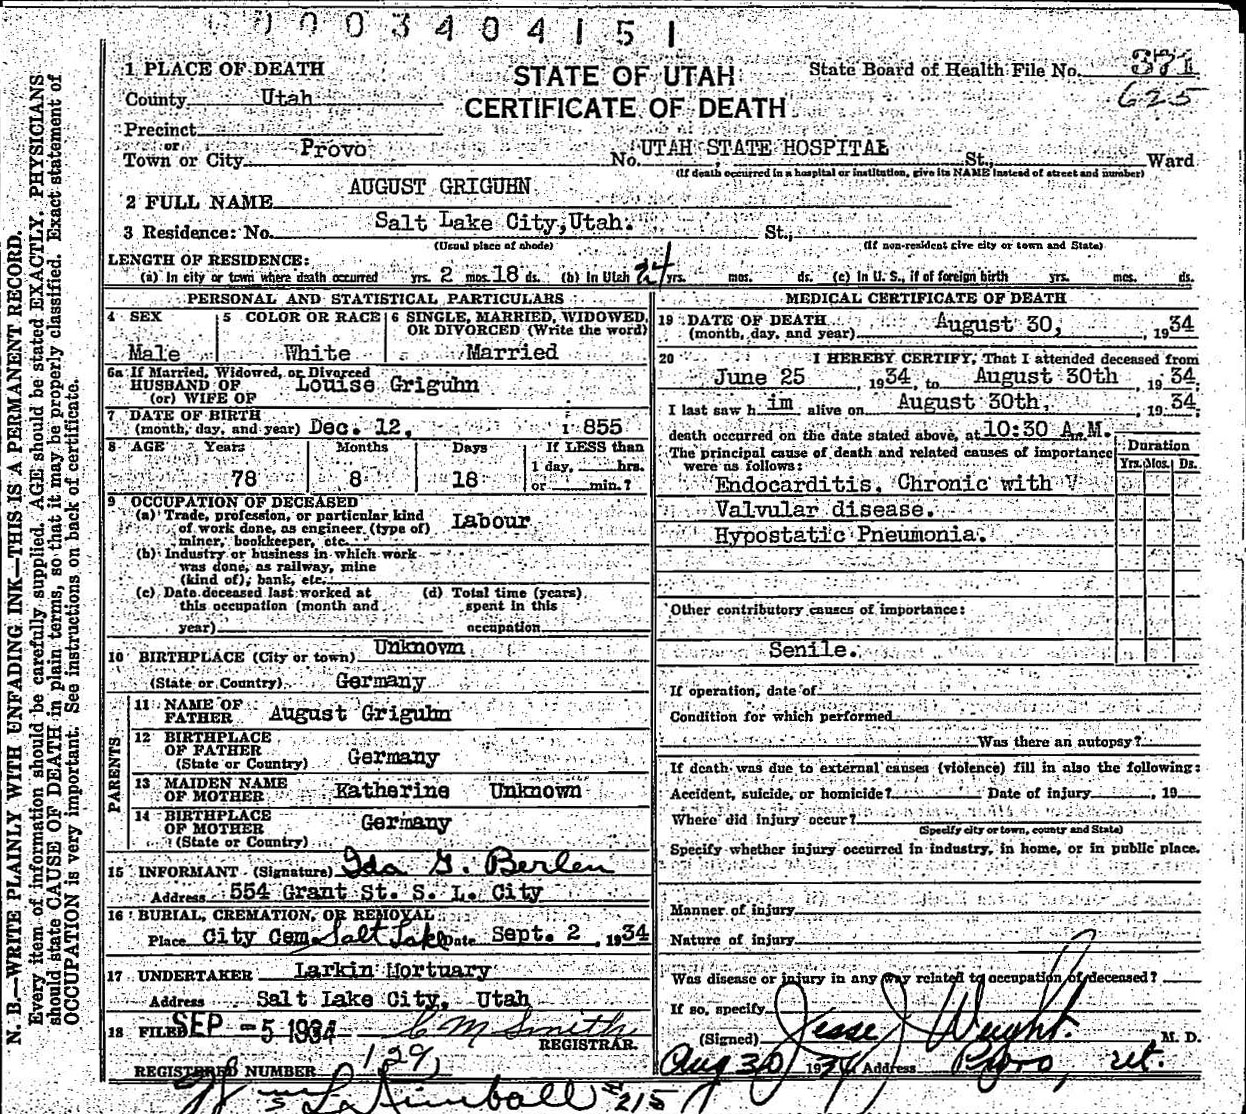 0003404151
1 PLACE OF DEATH
STATE OF UTAH
CERTIFICATE OF DEATH
State Board of Health File No. 371
625
County Utah
Precinct
or
Town or City Provo No. UTAH STATE HOSPITAL St., Ward
(If death occurred in a hospital or institution, give its NAME instead of street and number)
2 FULL NAME AUGUST GRIGUHN
3 Residence: No. Salt Lake City, Utah. St.,
(Usual place of abode) (If non-resident give city or town and State)
LENGTH OF RESIDENCE:
(a) In city or town where death occurred yrs. 2 mos. 18 ds. (b) In Utah 24 yrs. mos. ds. (c) In U. S., if of foreign birth yrs. mos. ds.
PERSONAL AND STATISTICAL PARTICULARS
4 SEX 5 COLOR OR RACE 6 SINGLE, MARRIED, WIDOWED, OR DIVORCED (Write the word)
Male White Married
6a If Married, Widowed, or Divorced
HUSBAND OF Louise Griguhn
(or) WIFE OF
7 DATE OF BIRTH
(month, day, and year) Dec. 12, 1855
8 AGE Years Months Days If LESS than
78 8 18 1 day, hrs.
or min.?
9 OCCUPATION OF DECEASED
(a) Trade, profession, or particular kind
of work done, as engineer (type of) Labour
miner, bookkeeper, etc.
(b) Industry or business in which work
was done, as railway, mine
(kind of), bank, etc.
(c) Date deceased last worked at (d) Total time (years)
this occupation (month and spent in this
year) occupation
10 BIRTHPLACE (City or town) Unknown
(State or Country) Germany
PARENTS
11 NAME OF
FATHER August Griguhn
12 BIRTHPLACE
OF FATHER Germany
(State or Country)
13 MAIDEN NAME
OF MOTHER Katherine Unknown
14 BIRTHPLACE
OF MOTHER Germany
(State or Country)
15 INFORMANT (Signature) Ida G. Berlen
Address 554 Grant St. S. L. City
16 BURIAL, CREMATION, OR REMOVAL
Place City Cem. Salt Lake Date Sept. 2, 1934
17 UNDERTAKER Larkin Mortuary
Address Salt Lake City, Utah
18 FILED SEP -5 1934 C M Smith
REGISTRAR.
REGISTERED NUMBER 129
MEDICAL CERTIFICATE OF DEATH
19 DATE OF DEATH
(month, day, and year) August 30, 1934
20 I HEREBY CERTIFY, That I attended deceased from
June 25, 1934, to August 30th, 1934.
I last saw him alive on August 30th, 1934.
death occurred on the date stated above, at 10:30 A.M.
The principal cause of death and related causes of importance
were as follows:
Duration
Yrs. Mos. Ds.
Endocarditis. Chronic with V
Valvular disease.
Hypostatic Pneumonia.
Other contributory causes of importance:
Senile.
If operation, date of
Condition for which performed
Was there an autopsy?
If death was due to external causes (violence) fill in also the following:
Accident, suicide, or homicide? Date of injury , 19
Where did injury occur?
(Specify city or town, county and State)
Specify whether injury occurred in industry, in home, or in public place.
Manner of injury
Nature of injury
Was disease or injury in any way related to occupation of deceased?
If so, specify
(Signed) Jesse J Weight. M. D.
Aug 30 1934 Address Provo, Ut.
Wm L Kimball 215
N. B.—WRITE PLAINLY WITH UNFADING INK—THIS IS A PERMANENT RECORD.
Every item of information should be carefully supplied. AGE should be stated EXACTLY. PHYSICIANS
should state CAUSE OF DEATH in plain terms, so that it may be properly classified. Exact statement of
OCCUPATION is very important. See instructions on back of certificate.